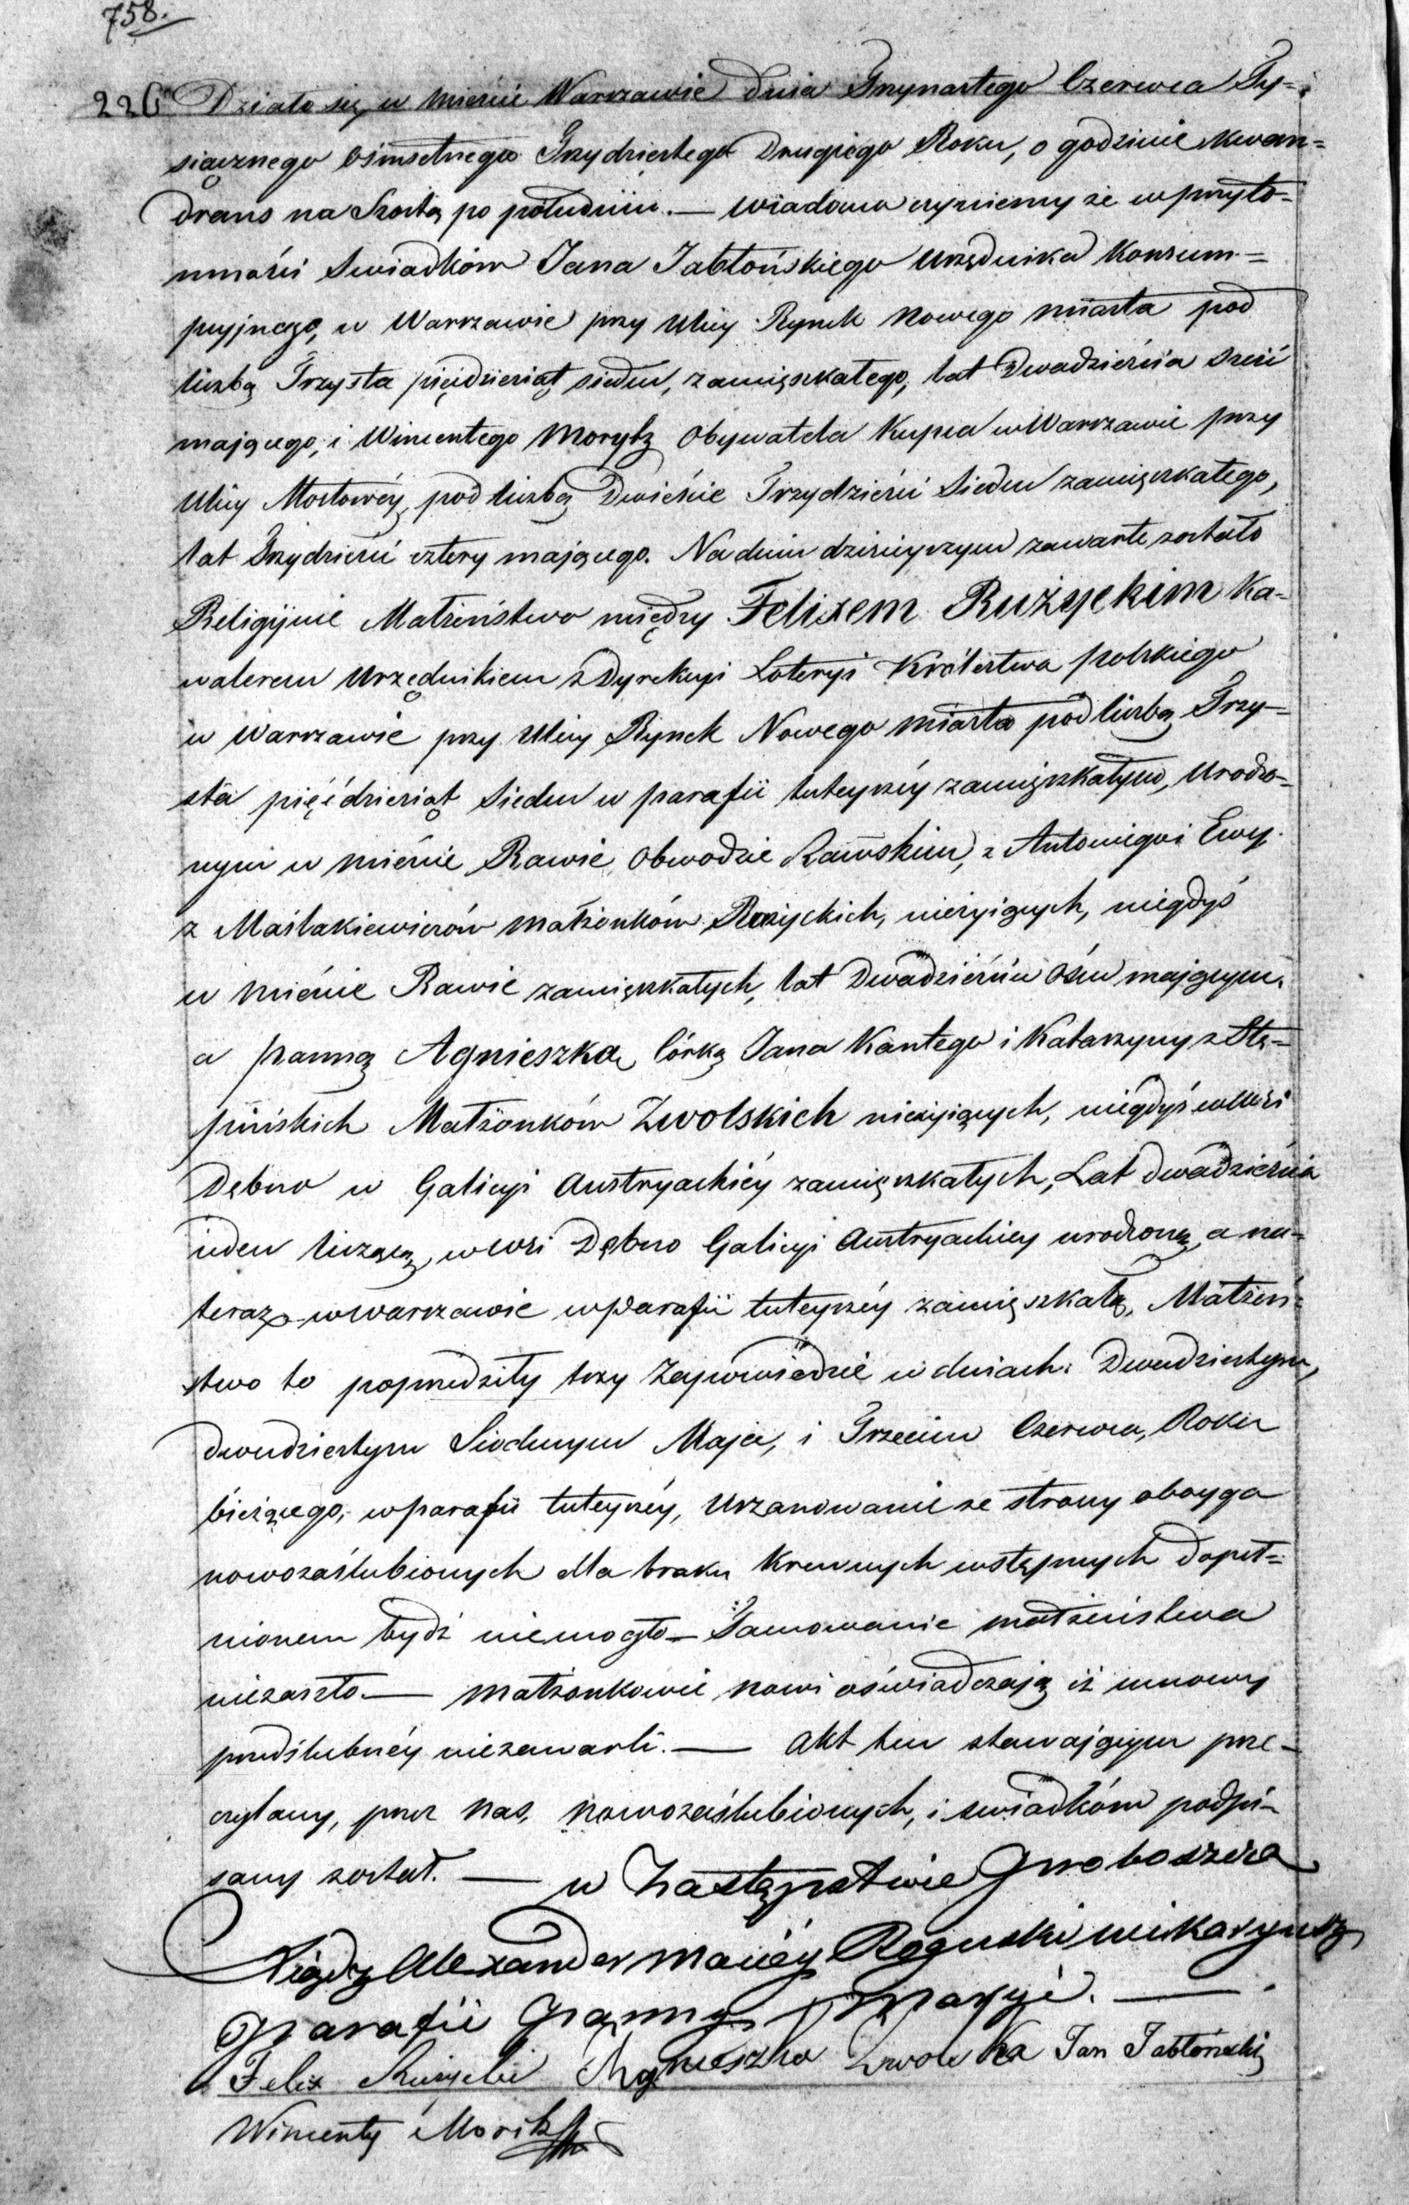 758.
226 Działo się w mieście Warszawie dnia Trzynastego Czerwca Ty-
siącznego ośmsetnego Trzydziestego Drugiego Roku, o godzinie kwan-
drans na Szostą po południu. — Wiadomo czyniemy że w przyto-
mności Swiadków Jana Jabłońskiego Urzędnika Konsum-
pcyjnego, w Warszawie przy Ulicy Rynek Nowego miasta pod
liczbą Trzysta pięćdziesiąt siedm, zamięszkałego, lat Dwadzieścia sześć
mającego, i Wincentego Morytz Obywatela Kupca w Warszawie przy
Ulicy Mostowéy pod liczbą Dwieście Trzydzieści Siedm zamięszkałego,
lat Trzydzieści cztery mającego. Na dniu dzisieyszym zawarte zostało
Religijnie Małżeństwo między Felixem Rużyckim Ka-
walerem Urzędnikiem z Dyrekcyi Loteryi Królestwa polskiego
w Warszawie przy Ulicy Rynek Nowego miasta pod liczbą Trzy-
sta pięćdziesiąt Siedm w parafii tuteyszéy zamięszkałym, Urodzo-
nym w mieście Rawie Obwodzie Rawskim, z Antoniego i Ewy
z Maślakiewiczów małżonków Rużyckich, nieżyiących, niegdyś
w mieście Rawie zamięszkałych, lat Dwadzieścia ośm mającym,
a panną Agnieszką Córką Jana Kantego i Katarzyny z Stę-
pińskich Małżonków Zwolskich nieżyiących, niegdyś w wsi
Dębno w Galicyi Austryackiéy zamięszkałych, Lat dwadzieścia
ieden liczącą, w wsi Dębno Galicyi Austryackiey urodzoną, a na-
teraz w Warszawie w Parafii tuteyszéy zamięszkałą, Małżeń-
stwo to poprzedziły trzy Zapowiedzie w dniach: Dwudziestym,
dwudziestym Siodmym Maja, i Trzecim Czerwca, Roku
bieżącego, w parafii tuteyszéy, Uszanowanie ze strony oboyga
nowozaślubionych dla braku Krewnych wstępnych dopeł-
nionem bydź niemogło — Tamowanie małżeństwa
niezaszło — małżonkowie nowi oświadczają iż umowy
przedślubnéy niezawarli. — Akt ten stawającym prze-
czytany, przez nas, nowozaślubionych, i swiadków podpi-
sany został. — w Zastępstwie Proboszcza
Xiądz Alexander Maciéy Roguski wikaryusz
Parafii Panny Maryi. —
Felix Rużycki Agnieszka Zwolska Jan Jabłoński
Wincenty Moritz